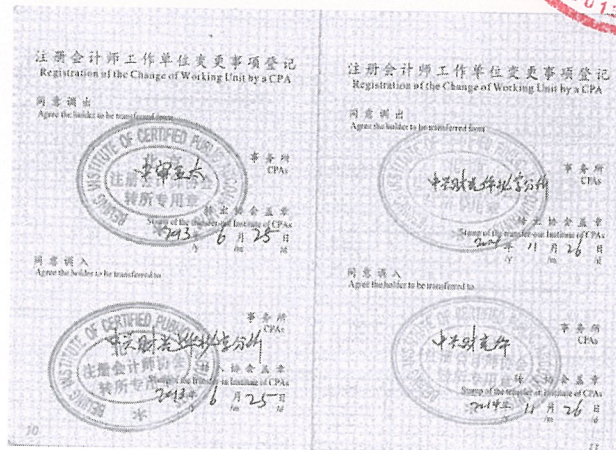 注册会计师工作单位变更事项登记
Registration of the Change of Working Unit by a CPA
同意调出
Agree the holder to be transferred from
BEIJING INSTITUTE OF CERTIFIED PUBLIC
注册会计师协会
转所专用章
中审亚太
事务所
CPAs
转出协会盖章
Stamp of the transfer-out Institute of CPAs
2013年 6月25日
/y /m /d
同意调入
Agree the holder to be transferred to
BEIJING INSTITUTE OF CERTIFIED PUBLIC
注册会计师协会
转所专用章
事务所
CPAs
转入协会盖章
Stamp of the transfer-in Institute of CPAs
2013年 6月25日
/y /m /d
10
注册会计师工作单位变更事项登记
Registration of the Change of Working Unit by a CPA
同意调出
Agree the holder to be transferred from
事务所
CPAs
转出协会盖章
Stamp of the transfer-out Institute of CPAs
11月26日
/y /m /d
同意调入
Agree the holder to be transferred to
中兴财光华
事务所
CPAs
转入协会盖章
Stamp of the transfer-in Institute of CPAs
2014年 11月26日
/y /m /d
11